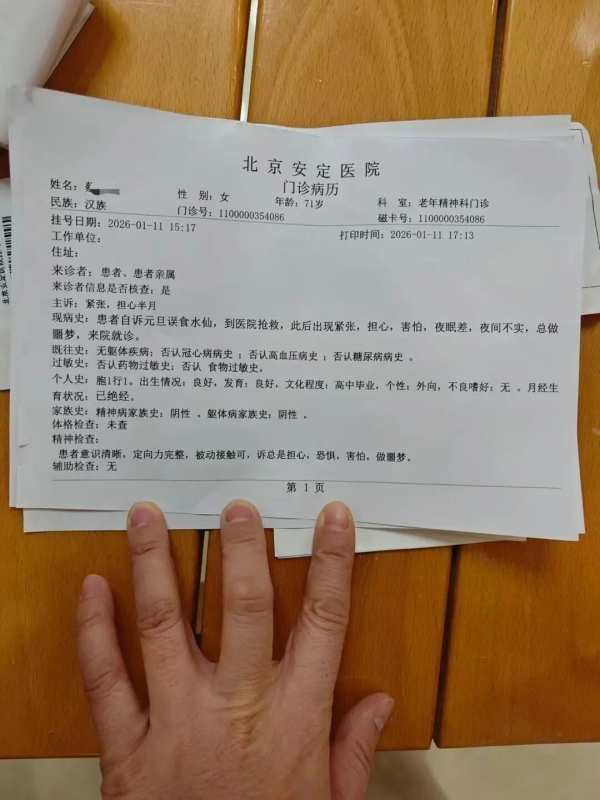 北京安定医院
门诊病历
姓名： 性 别：女 年龄：71岁 科 室：老年精神科门诊
民族：汉族 门诊号：1100000354086 磁卡号：1100000354086
挂号日期：2026-01-11 15:17 打印时间：2026-01-11 17:13
工作单位：
住址：
来诊者：患者、患者亲属
来诊者信息是否核查：是
主诉：紧张，担心半月
现病史：患者自诉元旦误食水仙，到医院抢救，此后出现紧张，担心，害怕，夜眠差，夜间不实，总做
噩梦，来院就诊。
既往史：无躯体疾病；否认冠心病病史 ；否认高血压病史 ；否认糖尿病病史 。
过敏史：否认药物过敏史；否认 食物过敏史。
个人史：胞1行1。出生情况：良好，发育：良好，文化程度：高中毕业，个性：外向，不良嗜好：无 。月经生
育状况：已绝经。
家族史：精神病家族史：阴性 。躯体病家族史：阴性 。
体格检查：未查
精神检查：
患者意识清晰，定向力完整，被动接触可，诉总是担心，恐惧，害怕，做噩梦。
辅助检查：无
第 1 页